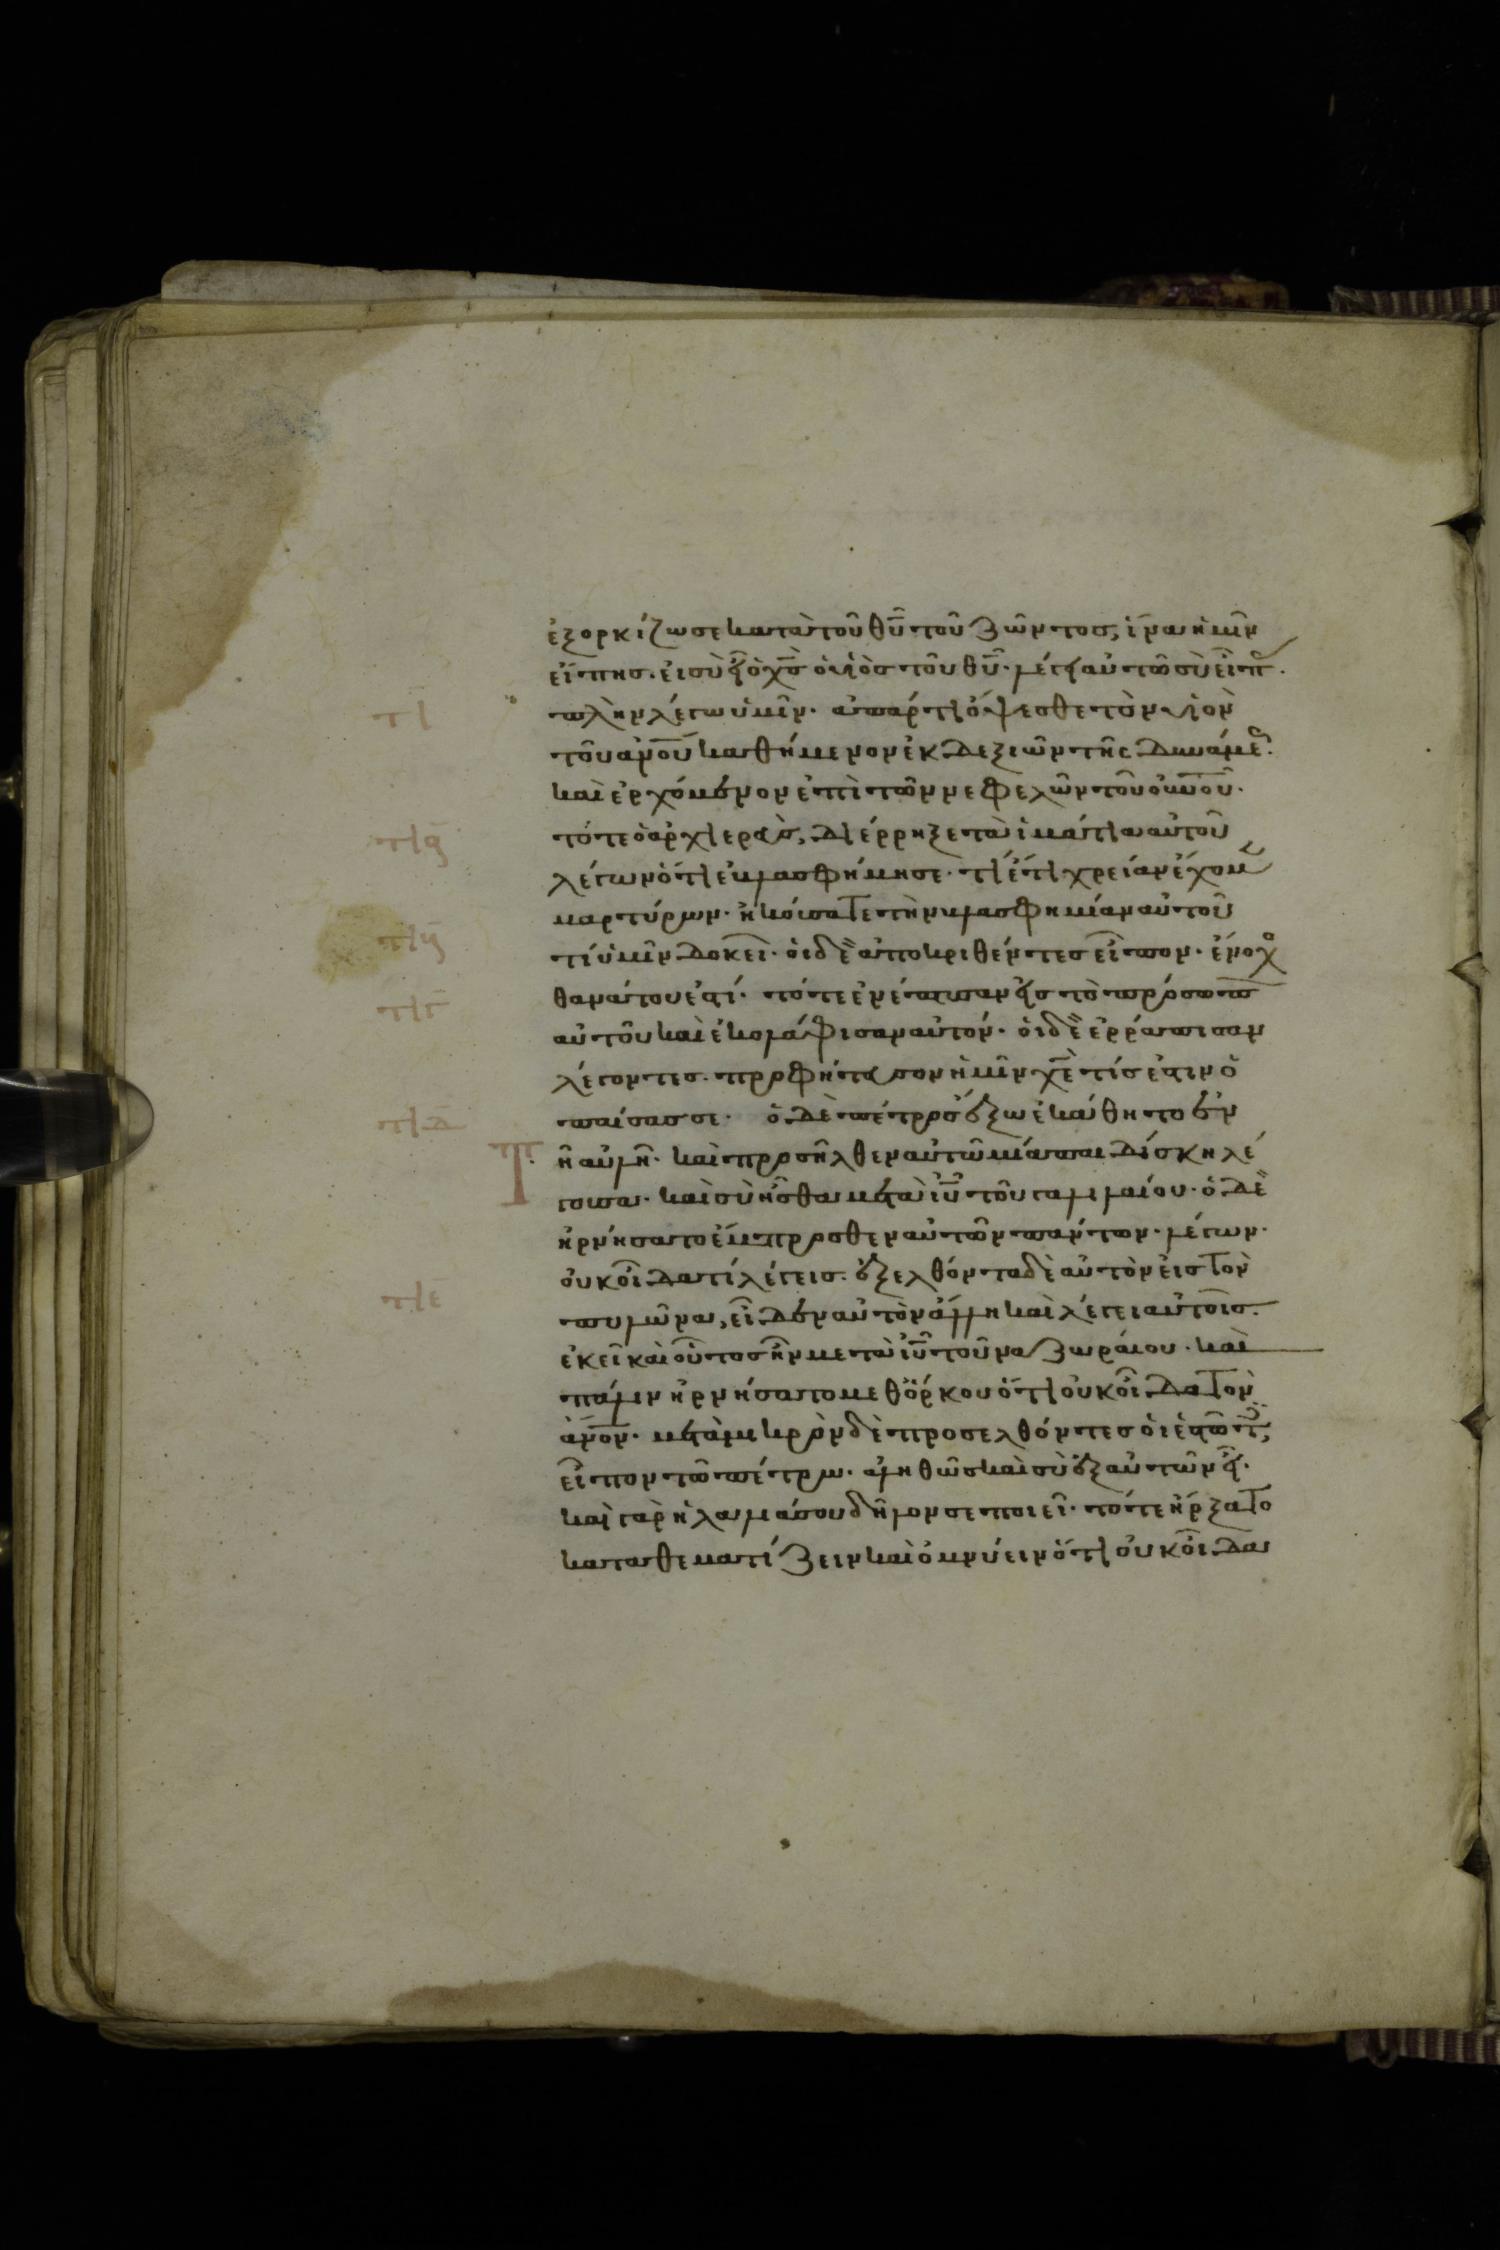 ἐξορκίζω σε κατὰ τοῦ θῦ τοῦ ζῶντος, ἵνα ἡμῖν
εἴπης. εἰ σὺ εἶ ὁ χς ὁ υἱὸς τοῦ θῦ· λέγει αὐτῶ σὺ εἶπας.
τι πλὴν λέγω ὑμῖν· ἀπάρτι ὄψεσθε τὸν υἱὸν
τοῦ ανου καθήμενον ἐκ δεξιῶν τῆς δυνάμεως.
καὶ ἐρχόμενον ἐπὶ τῶν νεφελῶν τοῦ ουνου·
τια τότε ὁ ἀρχιερεὺς, διέρρηξε τὰ ἱμάτια αὐτοῦ
λέγων ὅτι ἐβλασφήμησε· τί ἔτι χρείαν ἔχομεν
μαρτύρων· ἠκούσατε τὴν βλασφημίαν αὐτοῦ
τιβ τί ὑμῖν δοκεῖ· οἱ δὲ ἀποκριθέντες εἶπον· ἔνοχος
τιγ θανάτου ἐστί· τότε ἐνέπτυσαν εἰς τὸ πρόσωπον
αὐτοῦ καὶ ἐκολάφισαν αὐτόν· οἱ δὲ ἐρράπισαν
λέγοντες. προφήτευσον ἡμῖν χὲ τίς ἐστιν ὁ
τιδ παίσας σε· ὁ δὲ πέτρος ἔξω ἐκάθητο ἐν
τῆ αὐλῆ· καὶ προσῆλθεν αὐτῶ μία παιδίσκη λέ
γουσα· καὶ σὺ ἦσθα μετὰ ιῦ τοῦ γαλιλαίου· ὁ δὲ
ἠρνήσατο ἔμπροσθεν αὐτῶν πάντων· λέγων·
οὐκ οἶδα τί λέγεις. ἐξελθόντα δὲ αὐτὸν εἰς τὸν
τιε πυλῶνα, εἶδεν αὐτὸν ἄλλη καὶ λέγει αὐτοῖς.
ἐκεῖ καὶ οὗτος ἦν μετὰ ιῦ τοῦ ναζωραίου· καὶ
πάλιν ἠρνήσατο μεθ ὅρκου ὅτι οὐκ οἶδα τὸν
ἄνον· μετὰ μικρὸν δὲ προσελθόντες οἱ ἑστῶτες,
εἶπον τῶ πέτρω. ἀληθῶς καὶ σὺ ἐξ αὐτῶν εἶ·
καὶ γὰρ ἡ λαλιά σου δῆλον σε ποιεῖ· τότε ἤρξατο
καταθεματίζειν καὶ ὀμνύειν ὅτι οὐκ οἶδα